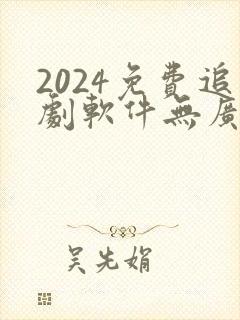 2024免費追
劇軟件無廣
吴先娟